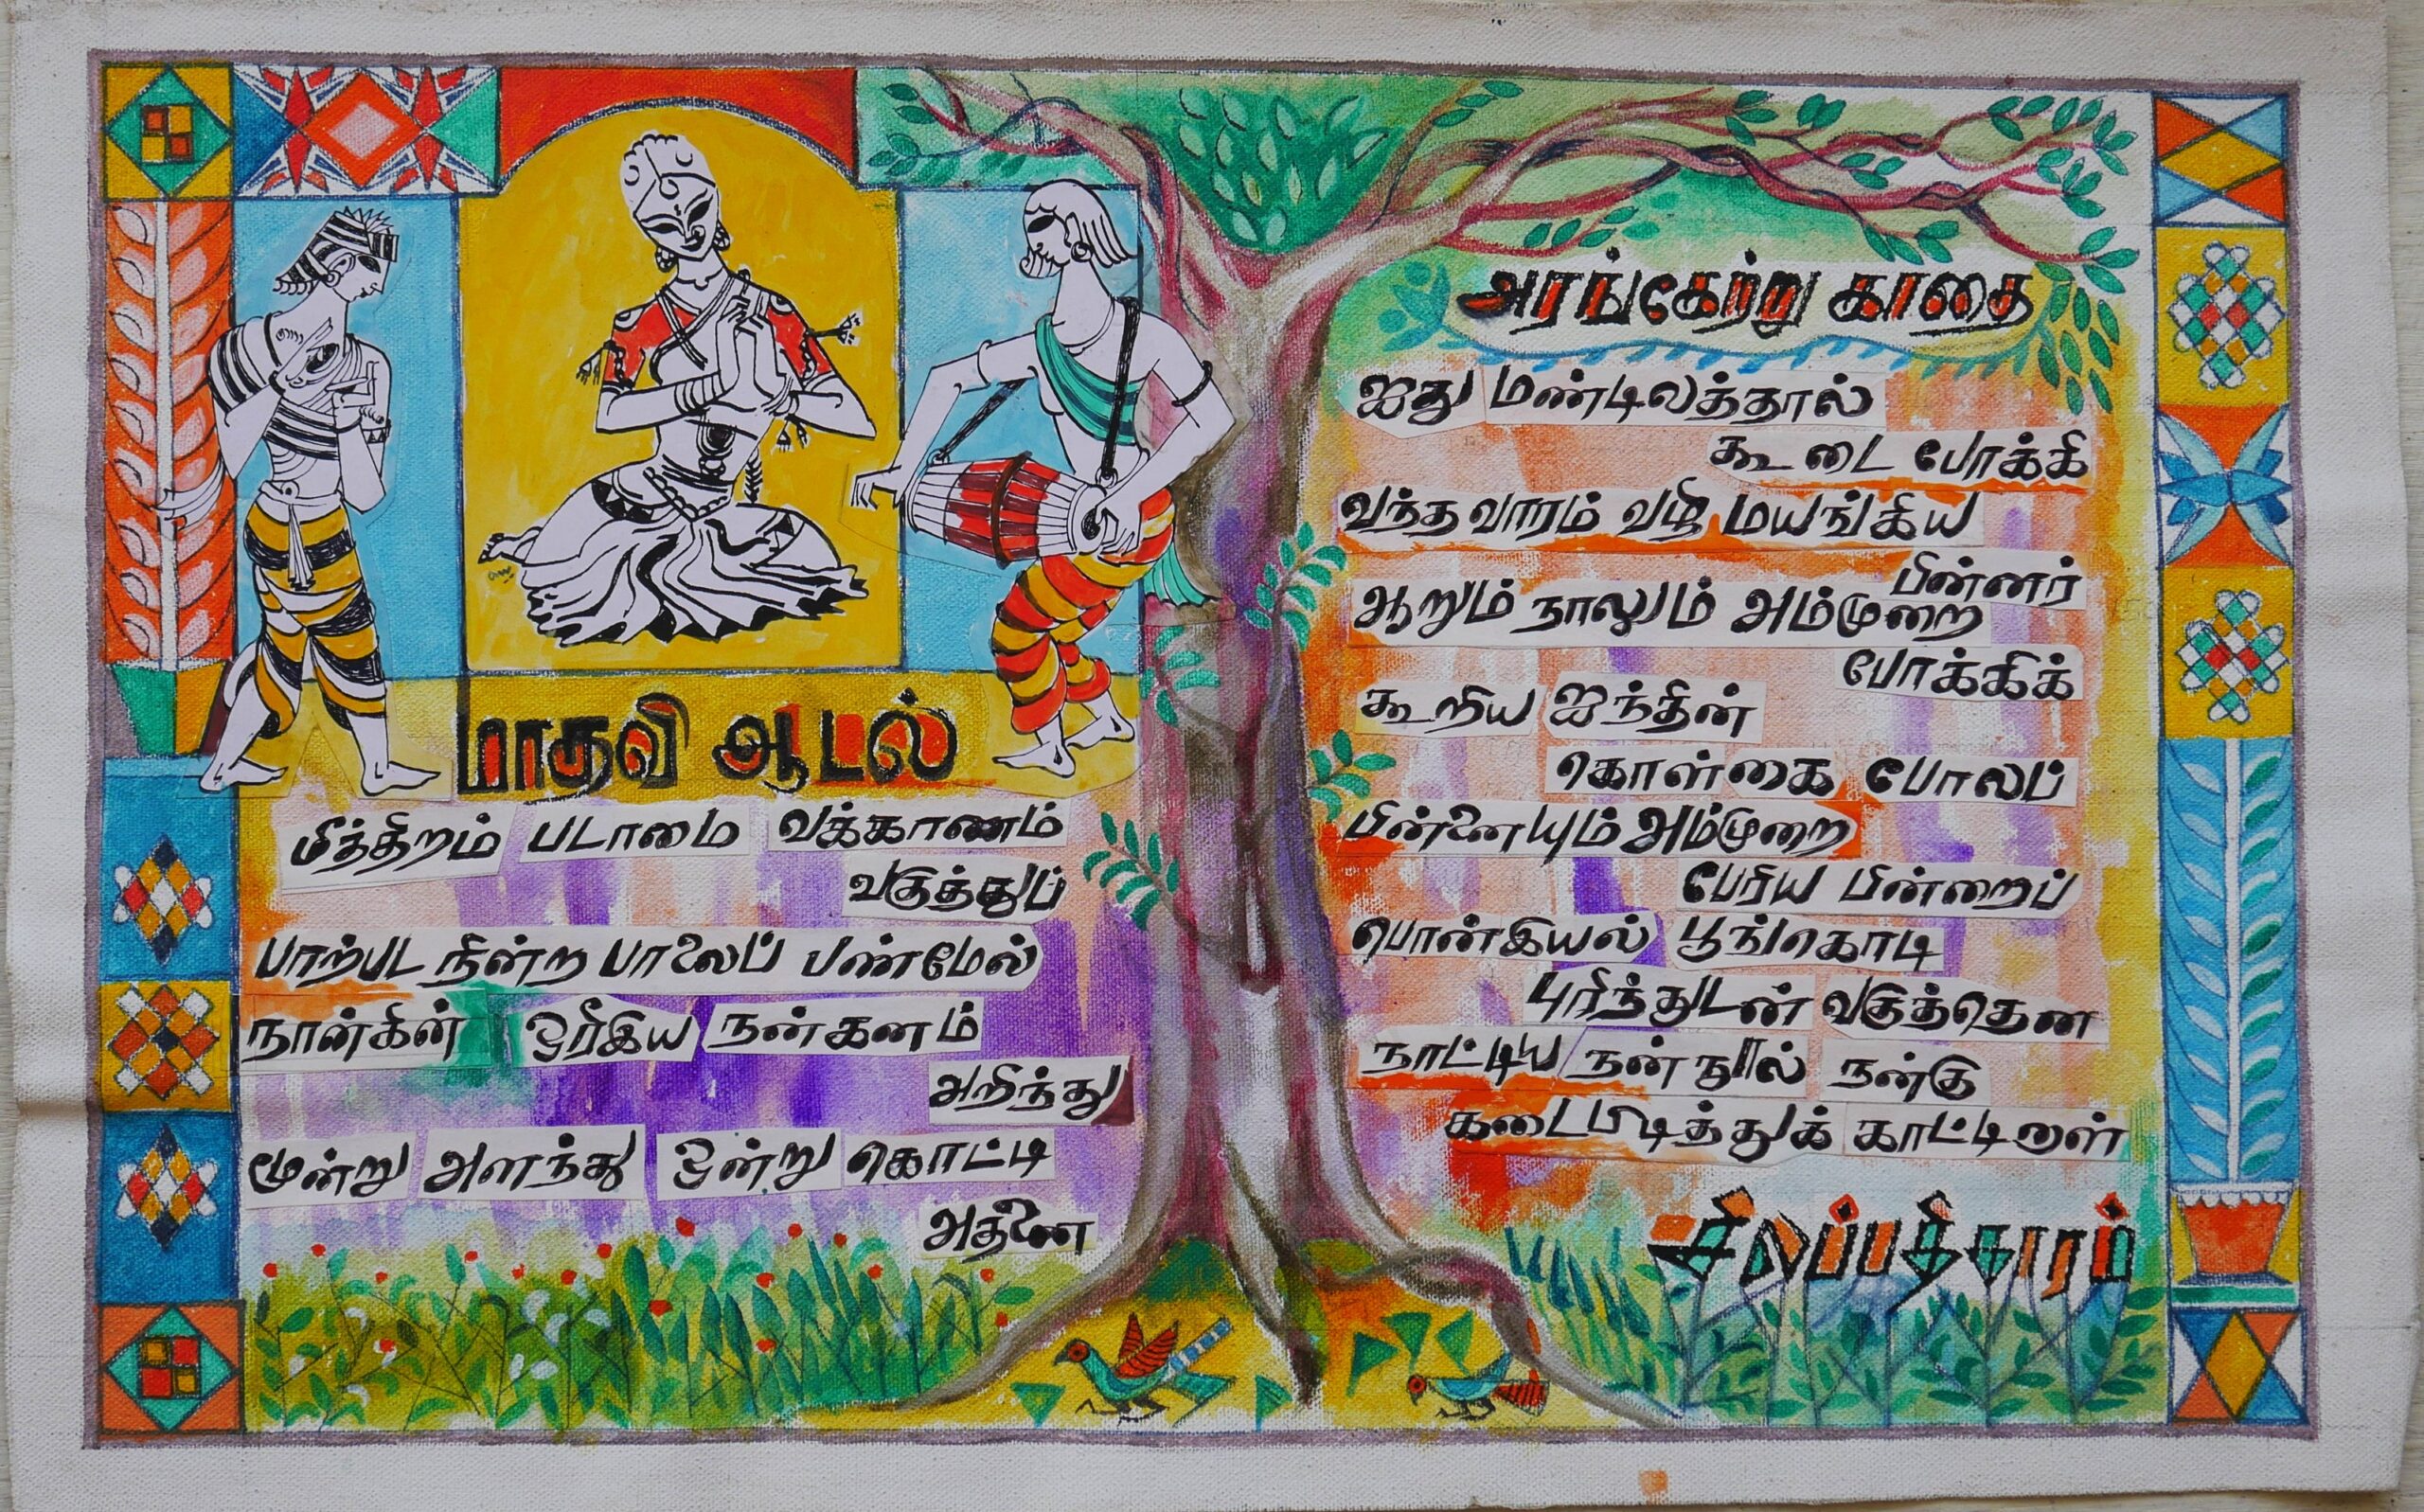 மாதவி ஆடல்
மீத்திறம் படாமை வக்காணம்
வகுத்துப்
பாற்பட நின்ற பாலைப் பண்மேல்
நான்கின் ஒரீஇய நன்கனம்
அறிந்து
மூன்று அளந்து ஒன்று கொட்டி
அதனை
அரங்கேற்று காதை
ஐது மண்டிலத்தால்
கூடை போக்கி
வந்த வாரம் வழி மயங்கிய
பின்னர்
ஆறும் நாலும் அம்முறை
போக்கிக்
கூறிய ஐந்தின்
கொள்கை போலப்
பின்னையும் அம்முறை
பேரிய பின்றைப்
பொன்இயல் பூங்கொடி
புரிந்துடன் வகுத்தென
நாட்டிய நன் நூல் நன்கு
கடைபிடித்துக் காட்டினாள்
சிலப்பதிகாரம்